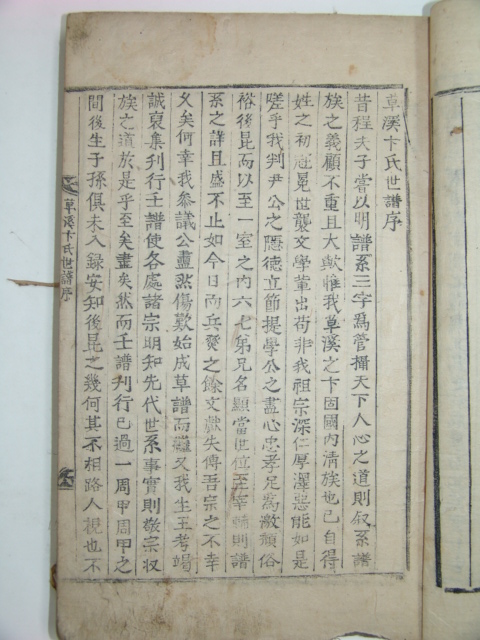 草溪卞氏世譜序
昔程夫子嘗以明譜系三字爲管攝天下人心之道則叙系譜
族之義顧不重且大歟惟我草溪之卞固國內淸族也已自得
姓之初冠冕世襲文學輩出苟非我祖宗深仁厚澤惡能如是
嗟乎我判尹公之隱德立節提學公之盡心忠孝足爲激頹俗
裕後昆而以至一室之內六七弟兄名顯當世位至宰輔則譜
系之詳且盛不止如今日而兵燹之餘文獻失傳吾宗之不幸
久矣何幸我叅議公盡然傷歎始成草譜而繼又我生王考竭
誠裒集刊行壬譜使各處諸宗明知先代世系事實則敬宗収
族之道放是乎至矣盡矣然而壬譜刊行已過一周甲周甲之
間後生子孫俱未入録安知後昆之幾何其不相路人視也不
草溪卞氏世譜序